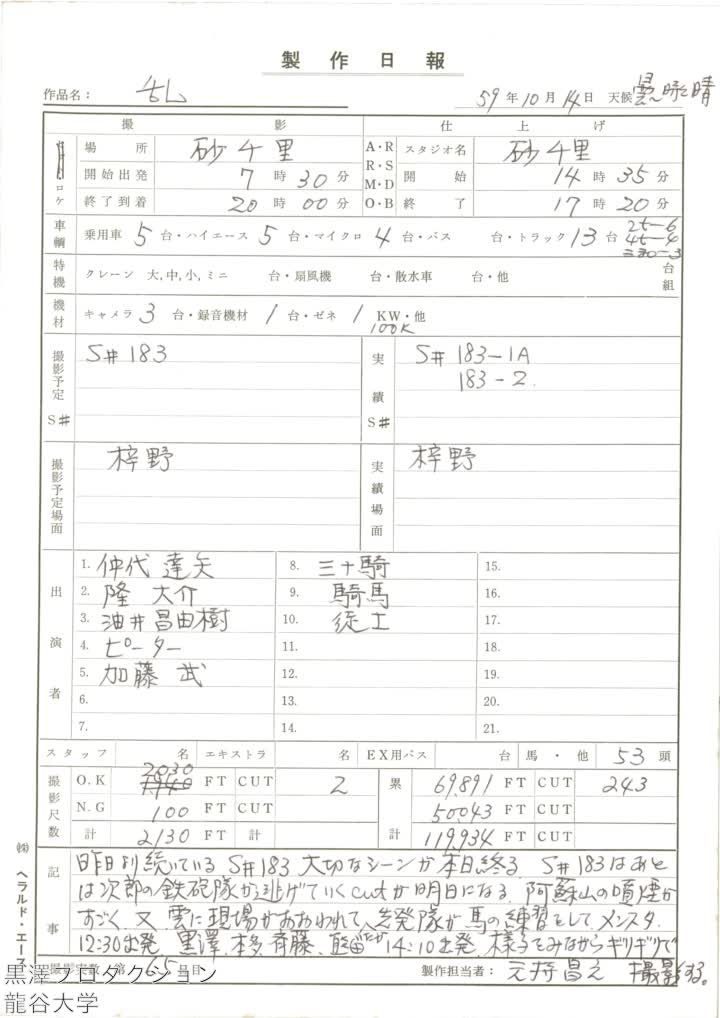 製作日報
作品名： 乱 59年10月14日 天候 曇時々晴
撮影 仕上げ
ロケ 場所 砂千里 A・R R・S M・D O・B スタジオ名 砂千里
開始出発 7時30分 開始 14時35分
終了到着 20時00分 終了 17時20分
車輌 乗用車 5台・ハイエース 5台・マイクロ 4台・バス 台・トラック 13台 2t-6 4t-4
特機 クレーン 大,中,小,ミニ 台・扇風機 台・散水車 台・他 台組
機材 キャメラ 3台・録音機材 1台・ゼネ 1 KW・他 100K
撮影予定S# S#183 実績S# S#183-1A
183-2.
撮影予定場面 梓野 実績場面 梓野
出演者 1. 仲代達矢 8. 三十騎 15.
2. 隆大介 9. 騎馬 16.
3. 油井昌由樹 10. 徒士 17.
4. ピーター 11. 18.
5. 加藤武 12. 19.
6. 13. 20.
7. 14. 21.
スタッフ 名 エキストラ 名 EX用バス 台 馬・他 53頭
撮影尺数 O.K 2030 FT CUT 2 累計 69,891 FT CUT 243
N.G 100 FT CUT 50043 FT CUT
計 2130 FT 計 119,934 FT CUT
記事 昨日より続いているS#183 大切なシーンが本日終る S#183はあと
は次郎の鉄砲隊が逃げていくcutが明日になる。阿蘇山の噴煙が
すごく、又、雲に現場がおおわれて、先発隊が馬の練習をして、メンスタ
12:30出発 黒澤、本多、斉藤、 14:10出発、様子をみながらギリギリで
撮影する。
撮影実数 第65日目 製作担当者：
㈱ ヘラルド・エース
黒澤プロダクション
龍谷大学